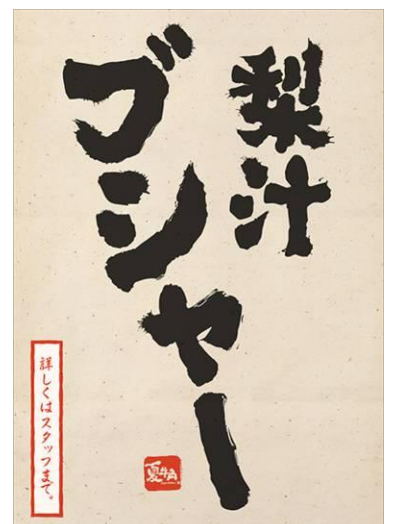 梨汁
ブシャー
詳しくはスタッフまで。